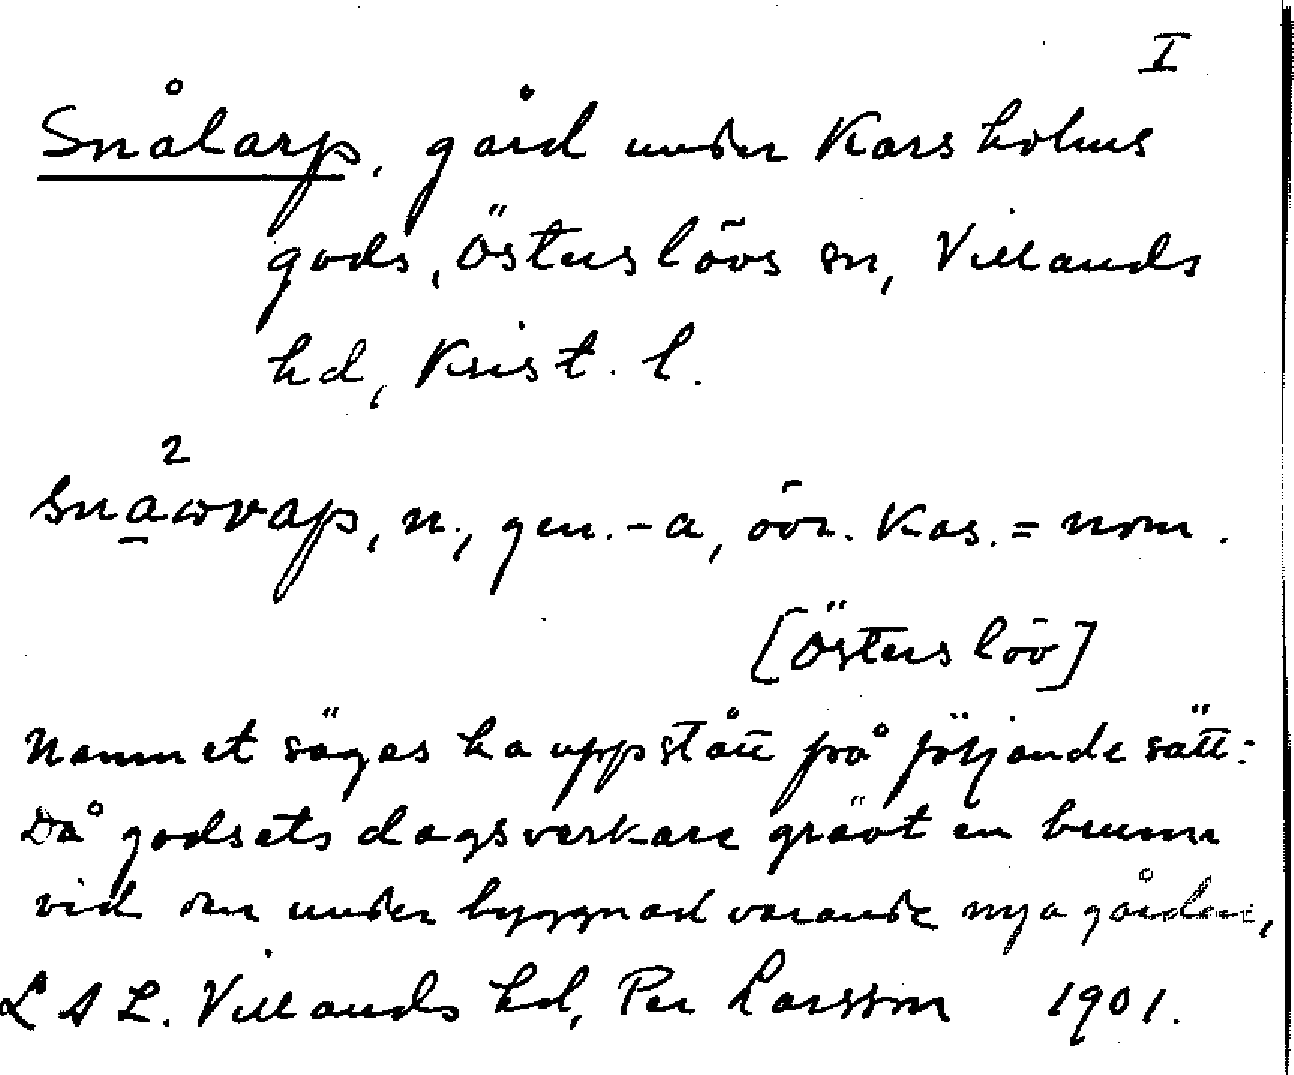 I
Snålarp, gård under Karsholms
gods, Österslövs sn, Villands
hd, Krist. l.
2
n., gen. -a, övr. Kas. = nom.
[Österslöv]
Namnet säges ha uppstått på följande sätt:
Då godsets dagsverkare grävt en brunn
vid den under byggnad varande nya gården,
L A L. Villands hd, Per Larsson 1901.